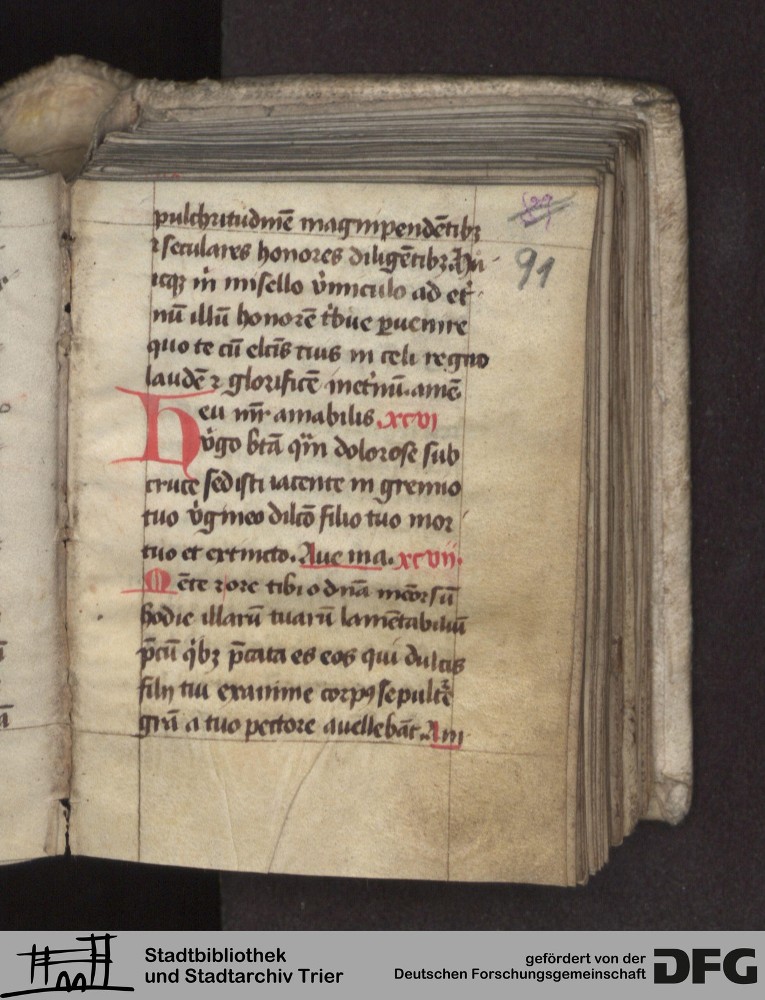 pulchritudinē magnipendētibꝫ
⁊ seculares honores diligētibꝫ
icqꝫ m̄ misello v̄miculo ad et̄
nū illū honorē t̄bue ꝑuenire
quo te cū elcīs tuis in celi regno
laudē ⁊ glorificē inet̄nū. amē
Heu mr̄ amabilis. xcvi
v̄go btā qm̄ dolorose sub
cruce sedisti iacente in gremio
tuo v̄gineo dilcō filio tuo mor
tuo et extincto. Aue ma. xcvij.
Mēte ⁊ ore tibi o dn̄a meōr sū
hodie illarū tuarū lamētabiliū
p̄cū q̄bꝫ p̄cata es eos qui dulcis
filij tui exanime corpꝯ sepultē
grā a tuo pectore auellebāt. Am
91
Stadtbibliothek
und Stadtarchiv Trier
gefördert von der
Deutschen Forschungsgemeinschaft
DFG